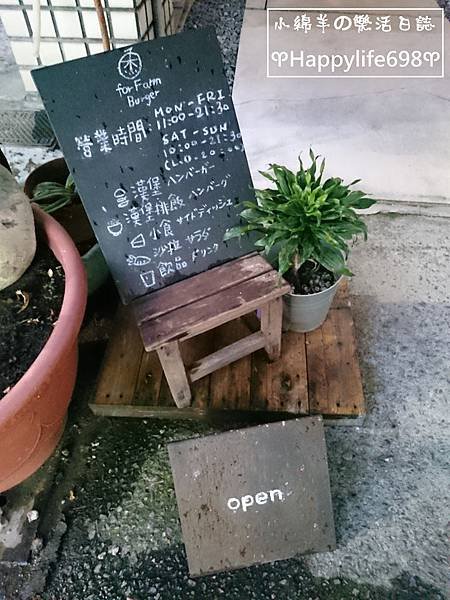 小綿羊の樂活日誌
♡Happylife698♡
禾
for Farm
Burger
營業時間:
MON-FRI
11:00-21:30
SAT-SUN
10:00-21:30
漢堡 ハンバーガー
漢堡排飯 ハンバーグ
小食 サイドディッシュ
沙拉 サラダ
飲品 ドリンク
open